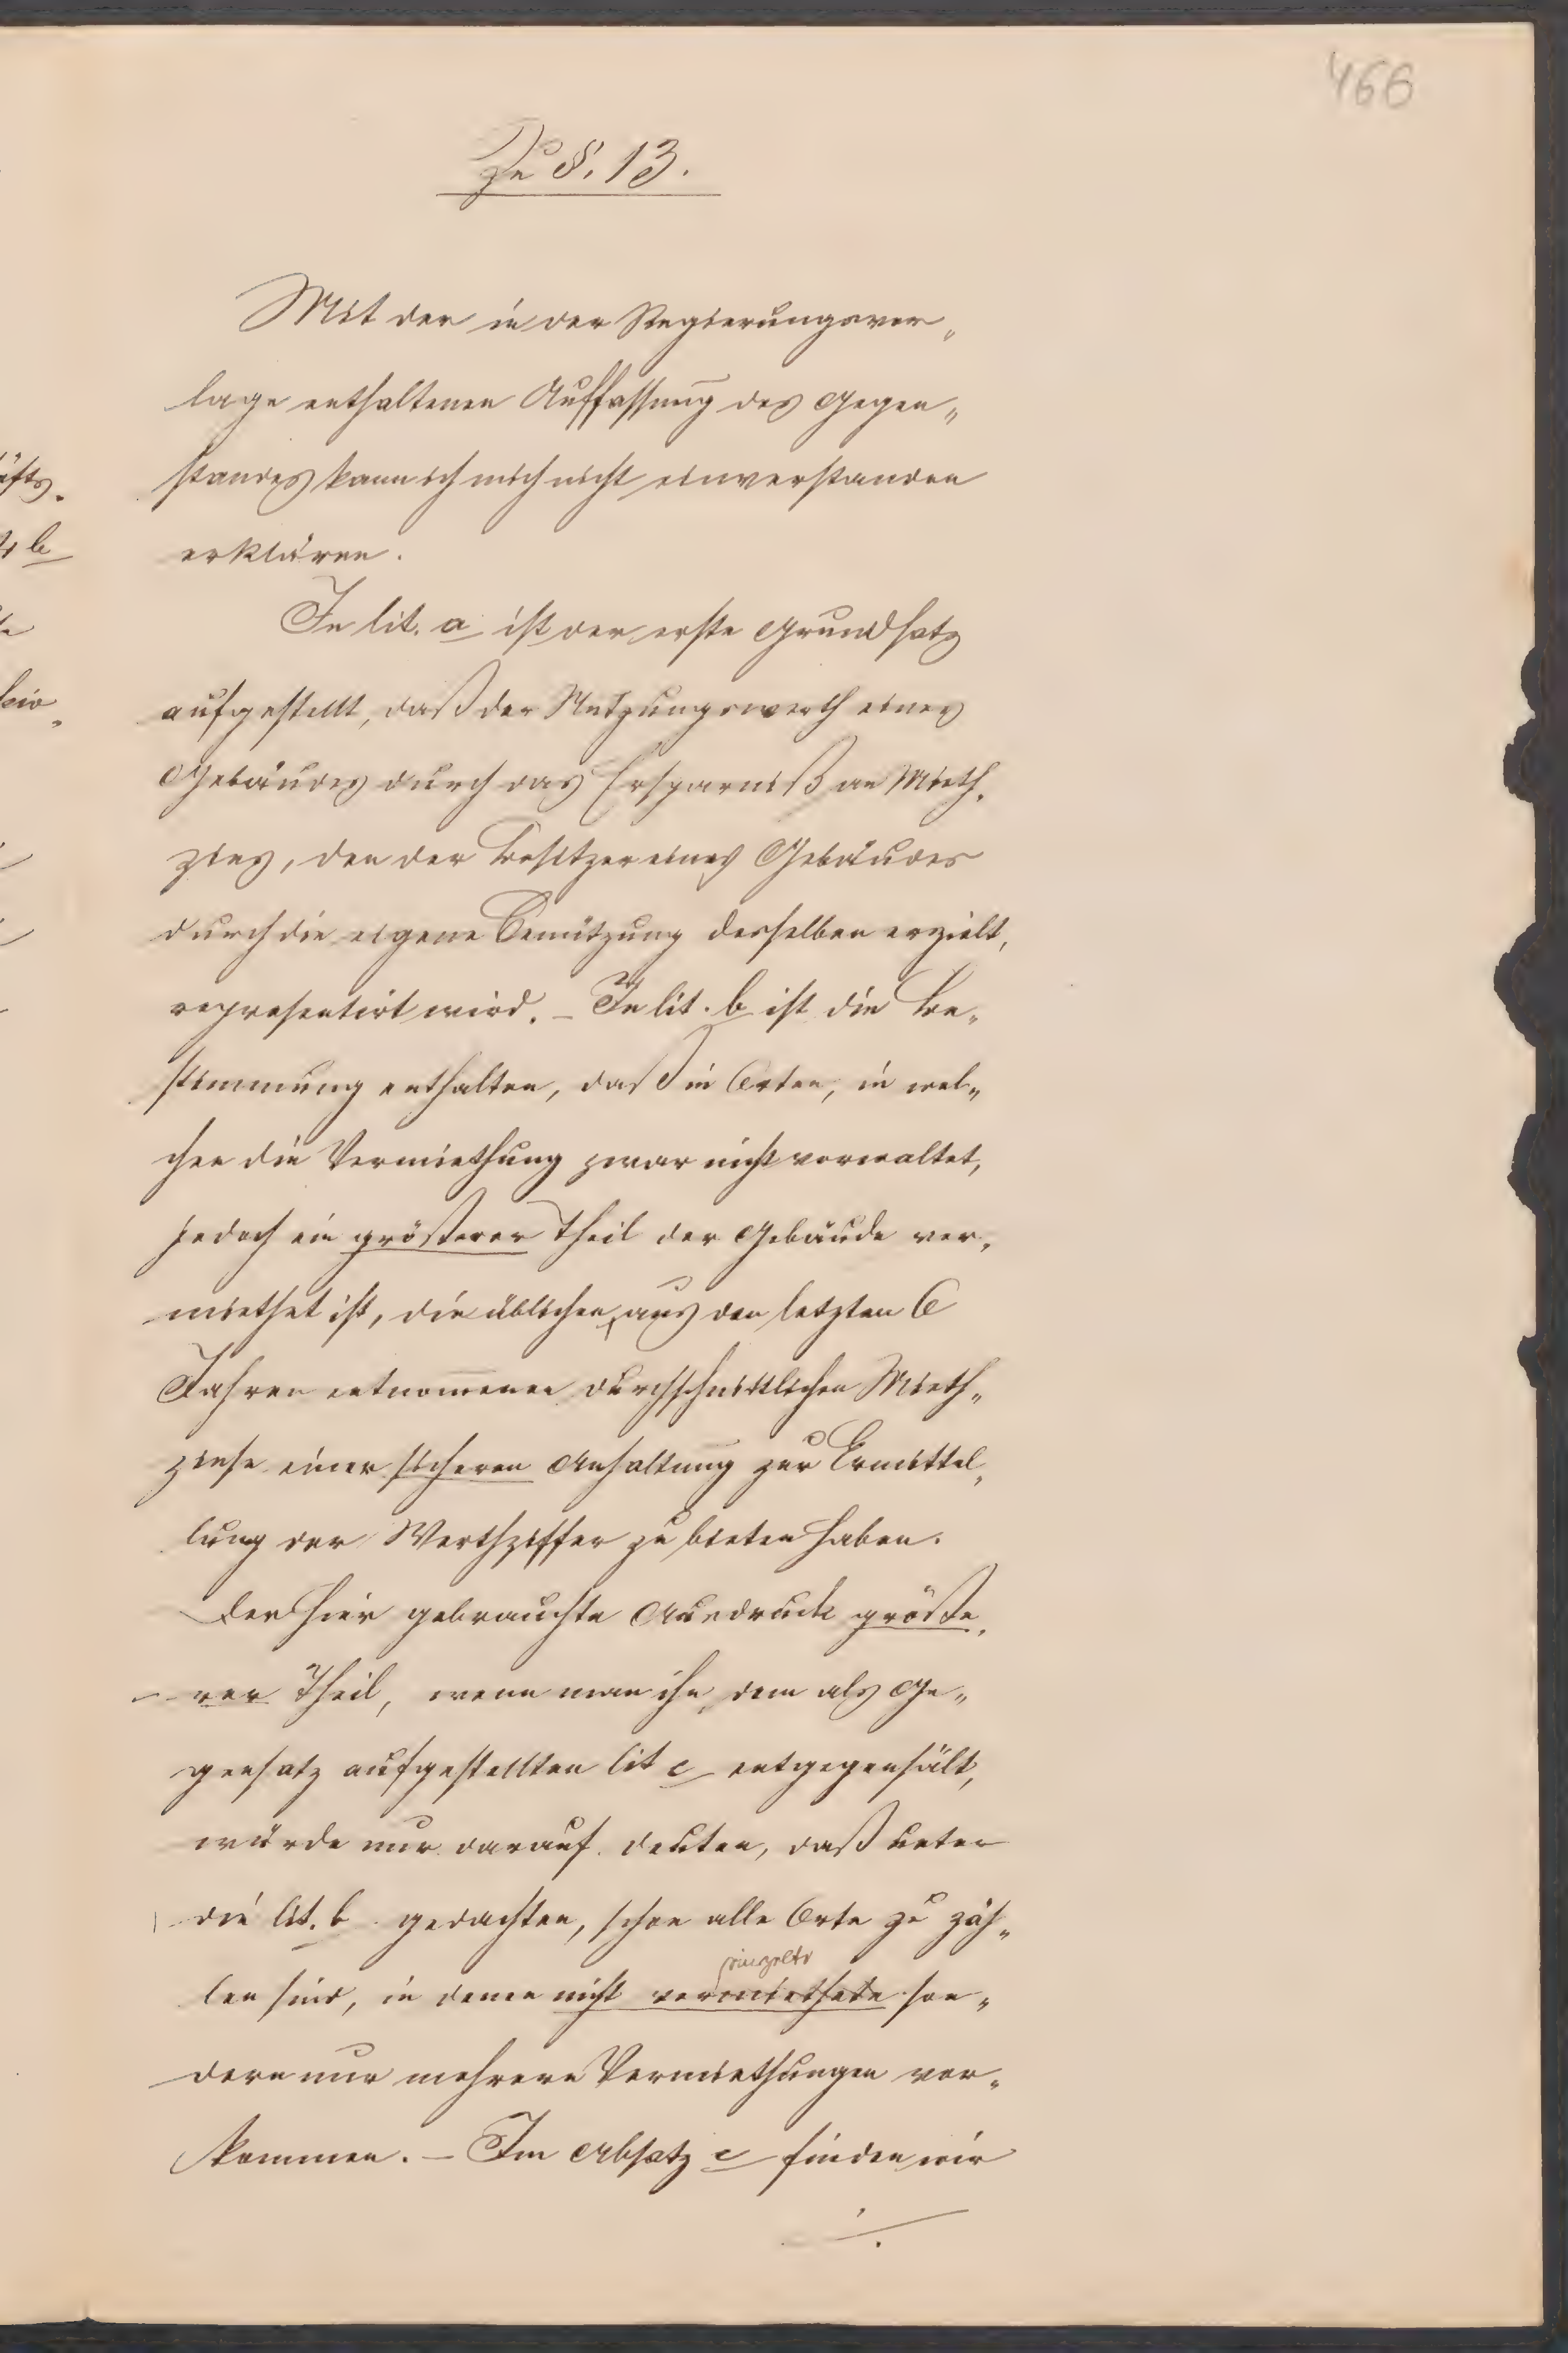 466
Zu §. 13.
Mit der in der Regierungsvor„
lage enthaltenen Auffassung des Gegen„
standes kann ich mich nicht einverstanden
erklären.
In lit. a ist der erste Grundsatz
aufgestellt, daß der Nutzungswerth eines
Gebäudes durch das Ersparniß an Mieth„
zins, den der Besitzer eines Gebäudes
durch die eigene Benützung desselben erzielt,
representirt wird. – In lit. b ist die Be„
stimmung enthalten, daß in Orten, in wel„
chen die Vermiethung zwar nicht vorwaltet,
jedoch ein größerer Theil der Gebäude ver„
miethet ist, die üblichen, aus den letzten 6
Jahren entnomenen durchschnittlichen Mieth„
zinse einen sicheren Anhaltung zur Ermittel„
lung der Werthziffer zu bieten haben.
Der hier gebrauchte Ausdruck größe„
rer Theil, wenn man ihn dem als Ge„
gensatz aufgestellten lit c entgegenhält,
würde nur darauf deuten, daß unter
die lit. b gedachten, schon alle Orte zu zäh„
len sind, in denen nicht vermiethete son„
einzelte
dern nur mehrere Vermiethungen vor„
kommen. – Im Absatz c finden wir
./.